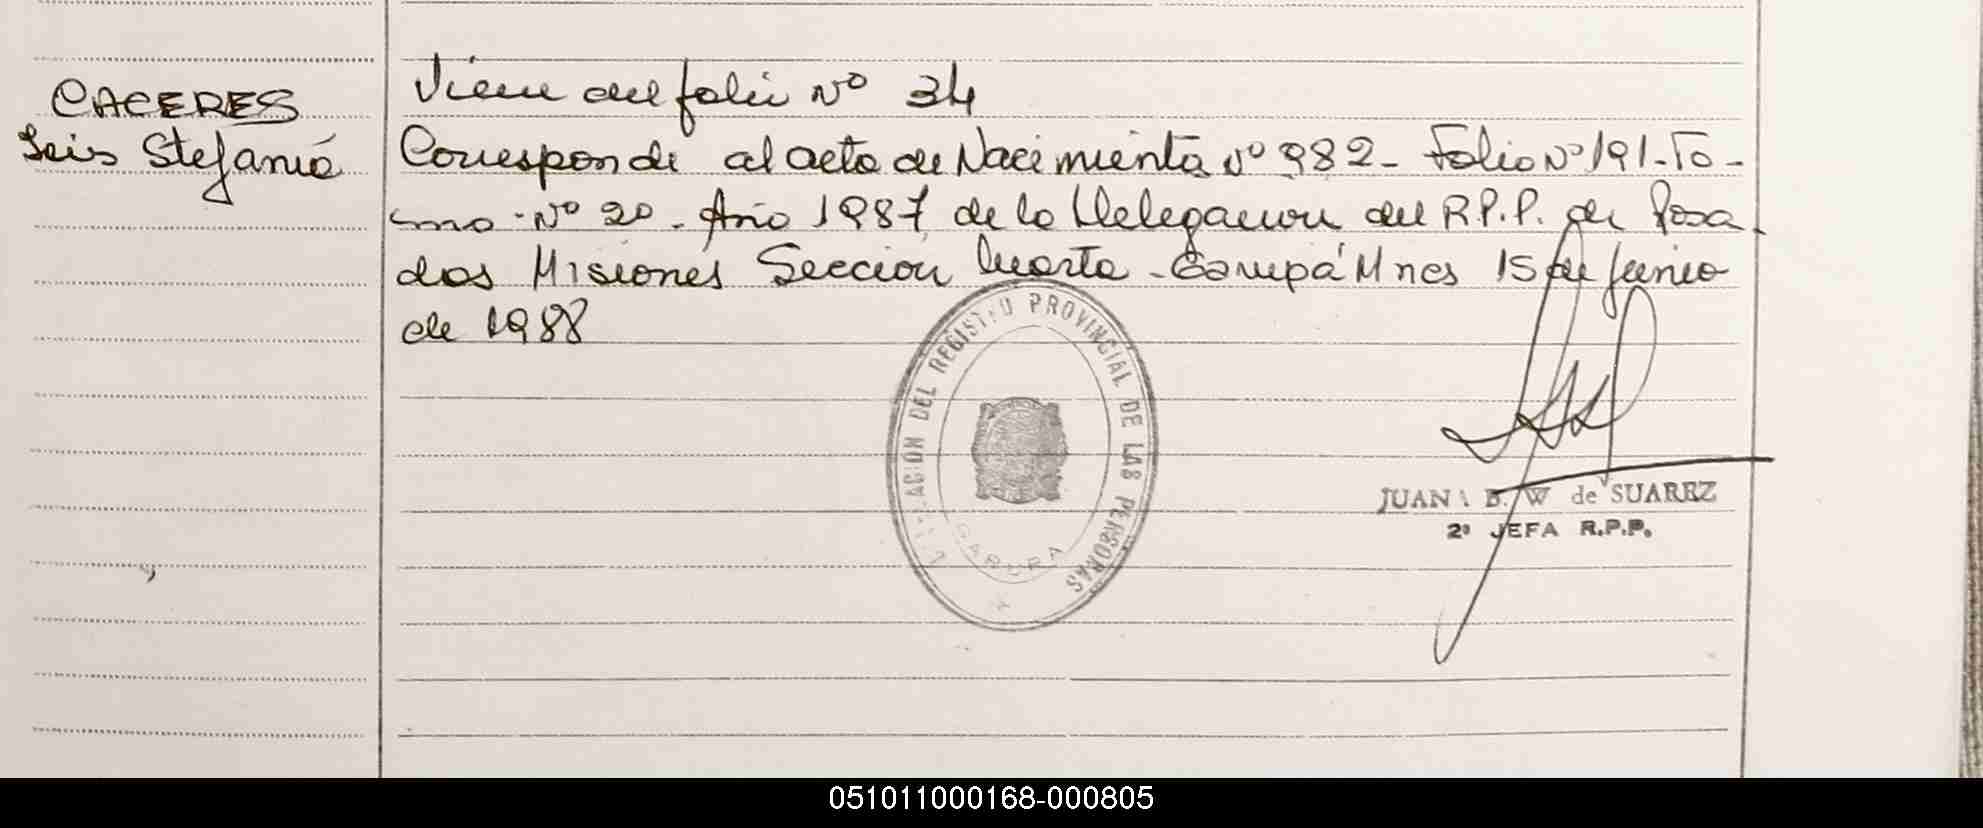 CACERES
Stefania
Viene del folio Nº 34
Corresponde al acta de Nacimiento Nº 982- Folio Nº 191-To-
mo -Nº 20 - Año 1987 de la Delegacion del R.P.P. de Posa
das Misiones Sección Cuarta - Garupá Mnes 15 de Junio
de 1988
DEL REGISTRO PROVINCIAL DE LAS PERSONAS
GARUPA
JUANA B. W de SUAREZ
2ª JEFA R.P.P.
051011000168-000805